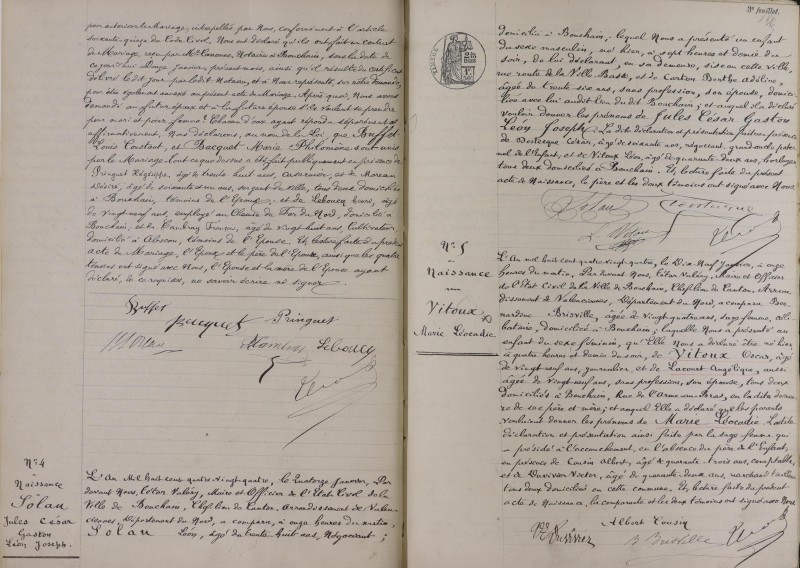 pour autoriser le Mariage, interpellés par Nous, conformément à l'article
soixante-quinze du Code Civil, Nous ont déclaré qu'ils ont fait un contrat
de Mariage, reçu par Me Notaire à Bouchain, sous la date
du Janvier, présent mois, ainsi qu'il résulte du certificat
délivré le dit jour par le dit Notaire, et à Nous représenté,
pour être également annexé au présent acte de Mariage. Après quoi, Nous avons
demandé au futur époux et à la future épouse s'ils veulent se prendre
pour mari et pour femme. Chacun d'eux ayant répondu séparément et
affirmativement, Nous déclarons, au nom de la Loi, que Buffet
Louis Constant, et Becquet Marie Philomène sont unis
par le Mariage. Tout ce que dessus a été fait publiquement en présence de
Pringuet âgé de trente huit ans, et de Moreau
Désiré, âgé de soixante et un ans, sergent de ville, tous deux domiciliés
à Bouchain, témoins de l'Epoux; et de Leboucq Henri, âgé
de vingt neuf ans, employé au Chemin de Fer du Nord, domicilié à
Bouchain, et de Cambray âgé de vingt huit ans, cultivateur,
domicilié à Abscon, témoins de l'Epouse. Et lecture faite du présent
acte de Mariage, l'Epoux et le père de l'Epouse, ainsi que les quatre
témoins ont signé avec Nous, l'Epouse et la mère de l'Epouse ayant
déclaré, de ce requises, ne savoir écrire ni signer.
Buffet
Becquet Pringuet
Moreau Leboucq
No 4
Naissance
Solau
Jules César
Gaston
Léon Joseph.
L'An Mil huit cent quatre vingt quatre, le quatorze Janvier, Par
devant Nous, Maire et Officier de l'Etat Civil de la
Ville de Bouchain, Chef lieu de Canton, Arrondissement de Valen-
ciennes, Département du Nord, a comparu, à onze heures du matin,
Solau Léon, âgé de trente huit ans, Négociant,
3e feuillet.
domicilié à Bouchain; lequel Nous a présenté un enfant
du sexe masculin, né hier, à sept heures et demie du
soir, de lui déclarant, en sa demeure, sise en cette ville,
rue de la Ville Basse, et de Carton Berthe Adéline,
âgée de trente six ans, sans profession, son épouse, domici-
liée avec lui audit lieu du dit Bouchain; et auquel il a déclaré
vouloir donner les prénoms de Jules César Gaston
Léon Joseph. La dite déclaration et présentation faites en présence
de César, âgé de soixante ans, négociant, grand oncle pater-
nel de l'Enfant, et de Vitoux Léon, âgé de quarante deux ans, horloger,
tous deux domiciliés à Bouchain. Et, lecture faite du présent
acte de Naissance, le père et les deux témoins ont signé avec Nous.
No 5
Naissance
Vitoux
Marie Léocadie
L'An mil huit cent quatre vingt quatre, le Dix Neuf Janvier, à onze
heures du matin, Par devant Nous, Maire et Officier
de l'Etat Civil de la Ville de Bouchain, Chef lieu de Canton, Arron-
dissement de Valenciennes, Département du Nord, a comparu Ber-
nardine Brisville, âgée de vingt quatre ans, sage femme, céli-
bataire, domiciliée à Bouchain; laquelle Nous a présenté un
enfant du sexe féminin, qu'Elle Nous a déclaré être né hier
à quatre heures et demie du soir, de Vitoux Oscar, âgé
de vingt neuf ans, journalier, et de Lacourt Angélique, aussi
âgée de vingt neuf ans, sans profession, son épouse, tous deux
domiciliés à Bouchain, Rue de en la dite demeu-
re de ses père et mère; et auquel Elle a déclaré que les parents
voulaient donner les prénoms de Marie Léocadie. La dite
déclaration et présentation ainsi faite par la sage femme qui
a présidé à l'accouchement, en l'absence du père de l'Enfant,
en présence de Cousin Albert, âgé de quarante trois ans, comptable,
et de Victor, âgé de quarante deux ans,
tous deux domiciliés en cette commune. Et, lecture faite du présent
acte de Naissance, la comparante et les deux témoins ont signé avec Nous.
Albert Cousin
B Brisville